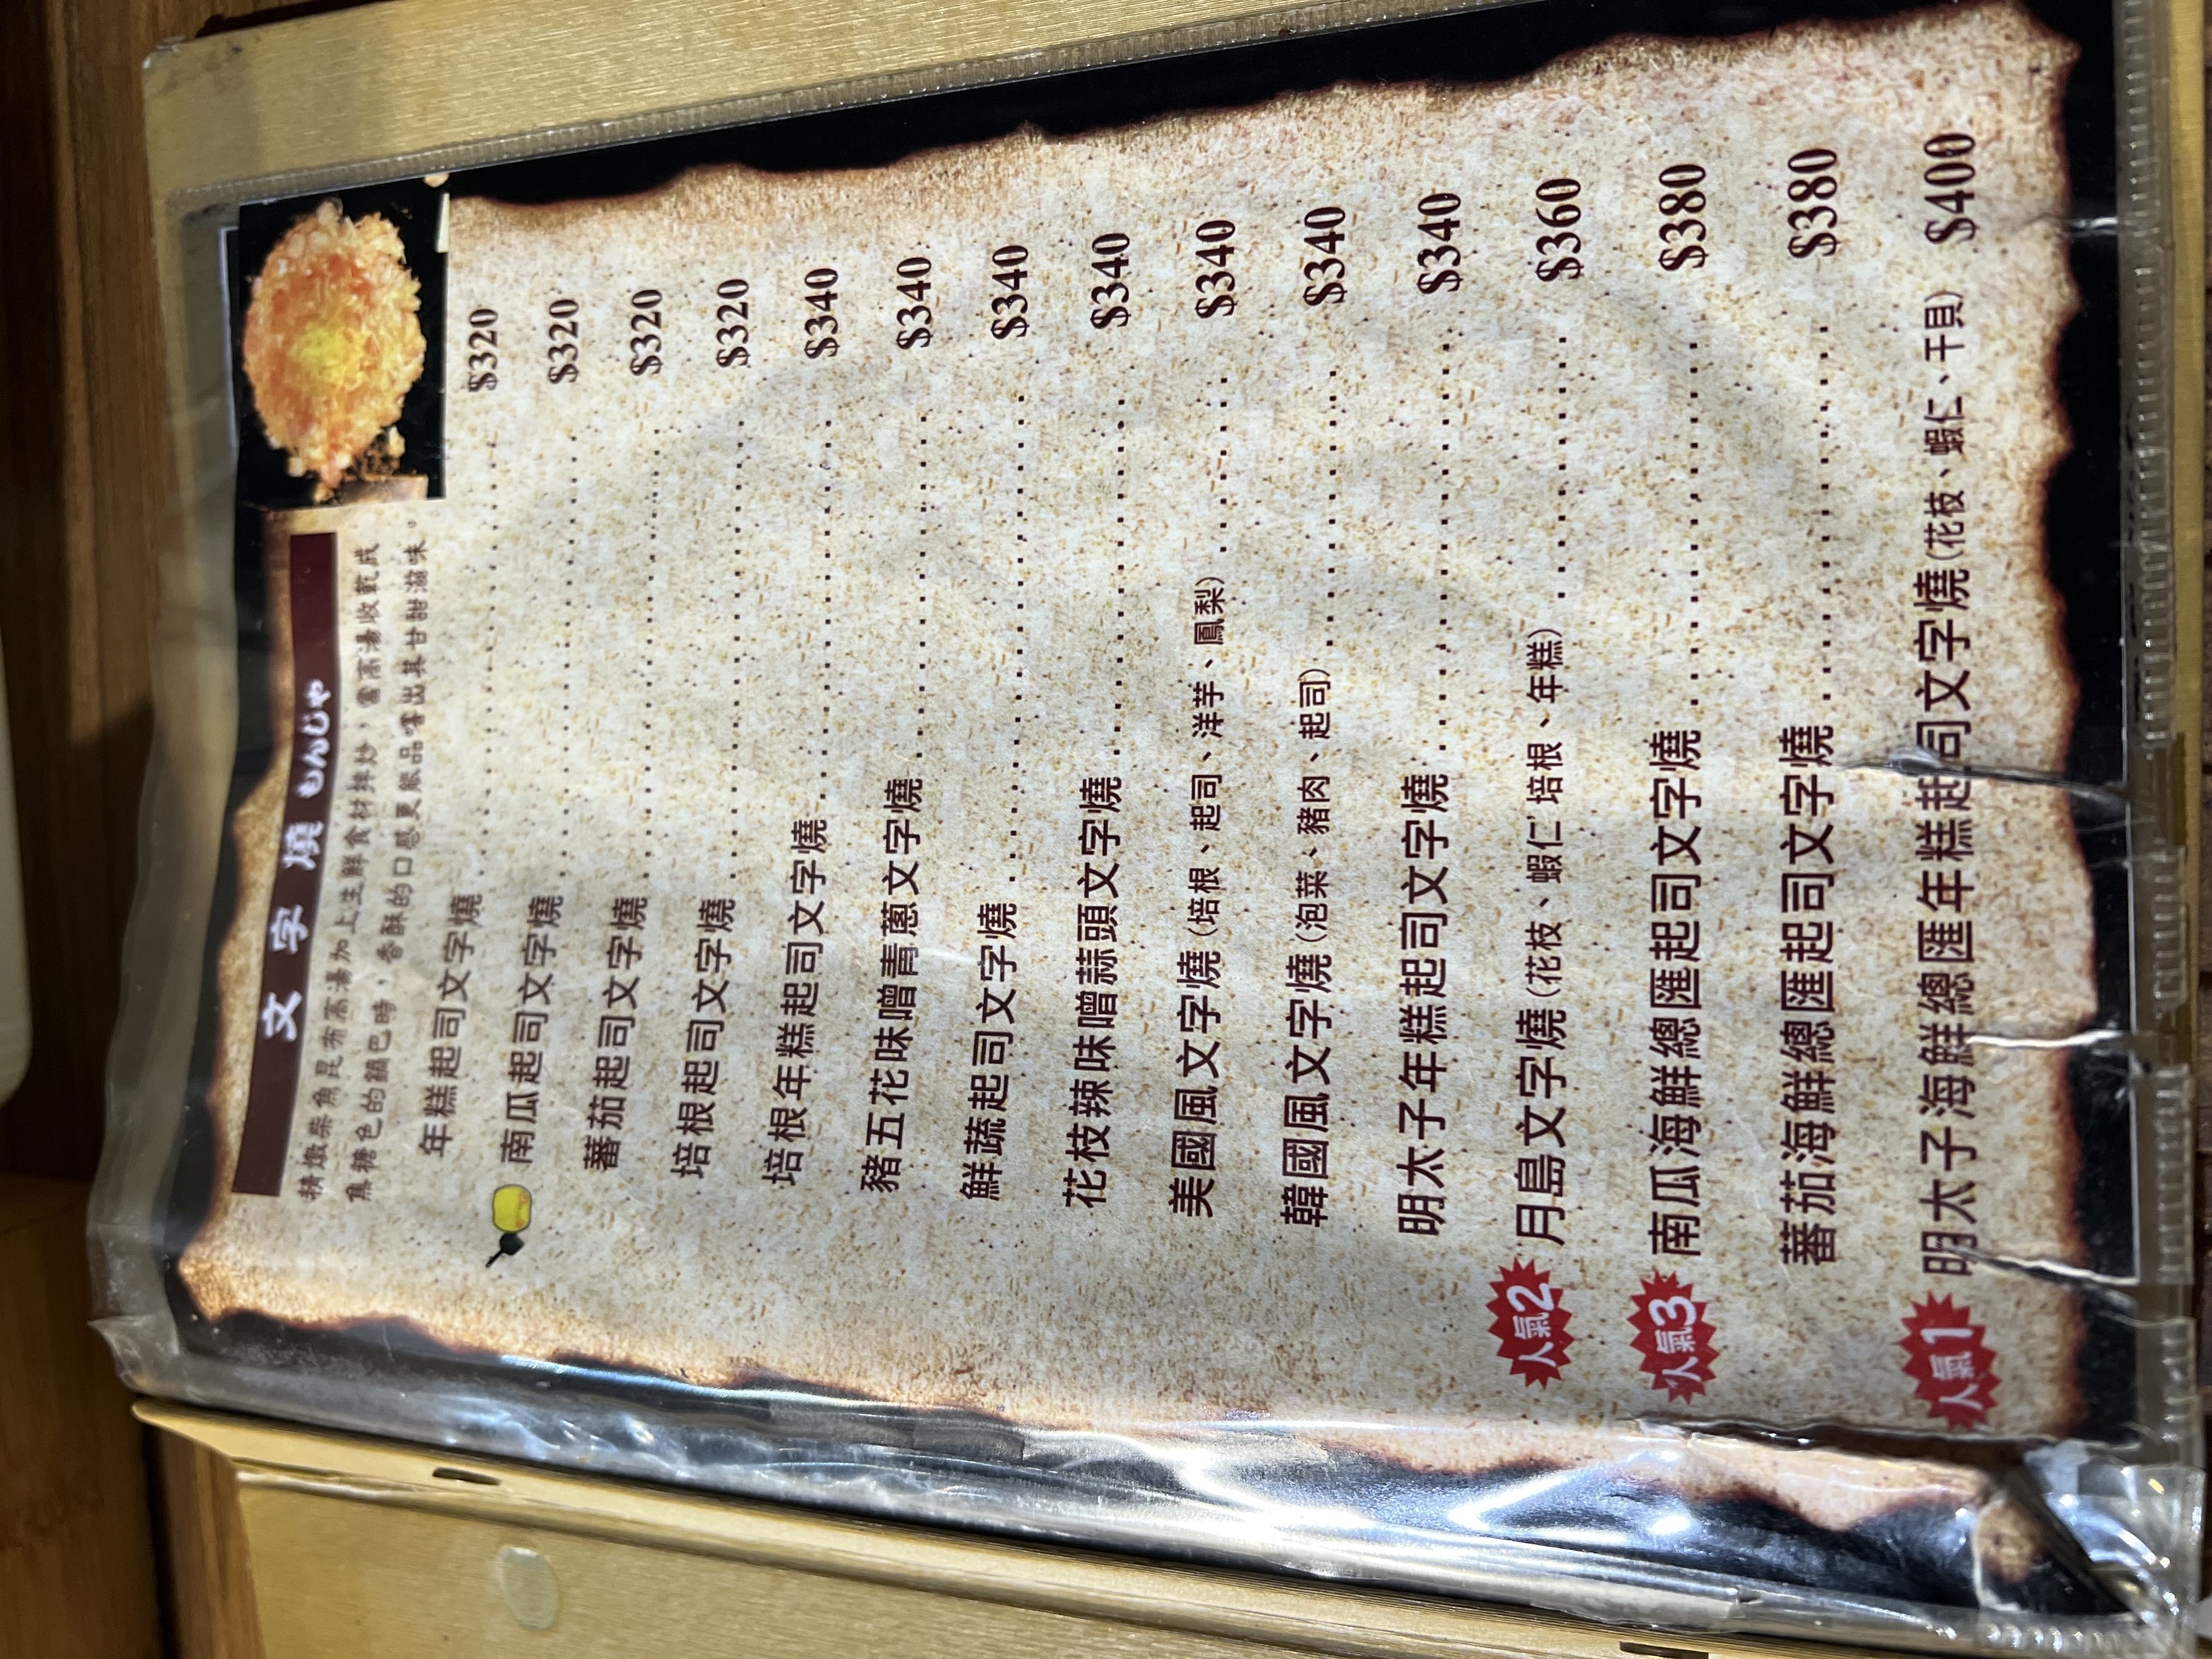 文字燒 もんじゃ
精燉柴魚昆布高湯加上生鮮食材拌炒，當高湯收乾成
焦糖色的鍋巴時，香酥的口感更能品嚐出其甘甜滋味。
年糕起司文字燒 $320
南瓜起司文字燒 $320
蕃茄起司文字燒 $320
培根起司文字燒 $320
培根年糕起司文字燒 $340
豬五花味噌青蔥文字燒 $340
鮮蔬起司文字燒 $340
花枝辣味噌蒜頭文字燒 $340
美國風文字燒(培根、起司、洋芋、鳳梨) $340
韓國風文字燒(泡菜、豬肉、起司) $340
明太子年糕起司文字燒 $340
人氣2 月島文字燒(花枝、蝦仁、培根、年糕) $360
人氣3 南瓜海鮮總匯起司文字燒 $380
蕃茄海鮮總匯起司文字燒 $380
人氣1 明太子海鮮總匯年糕起司文字燒(花枝、蝦仁、干貝) $400